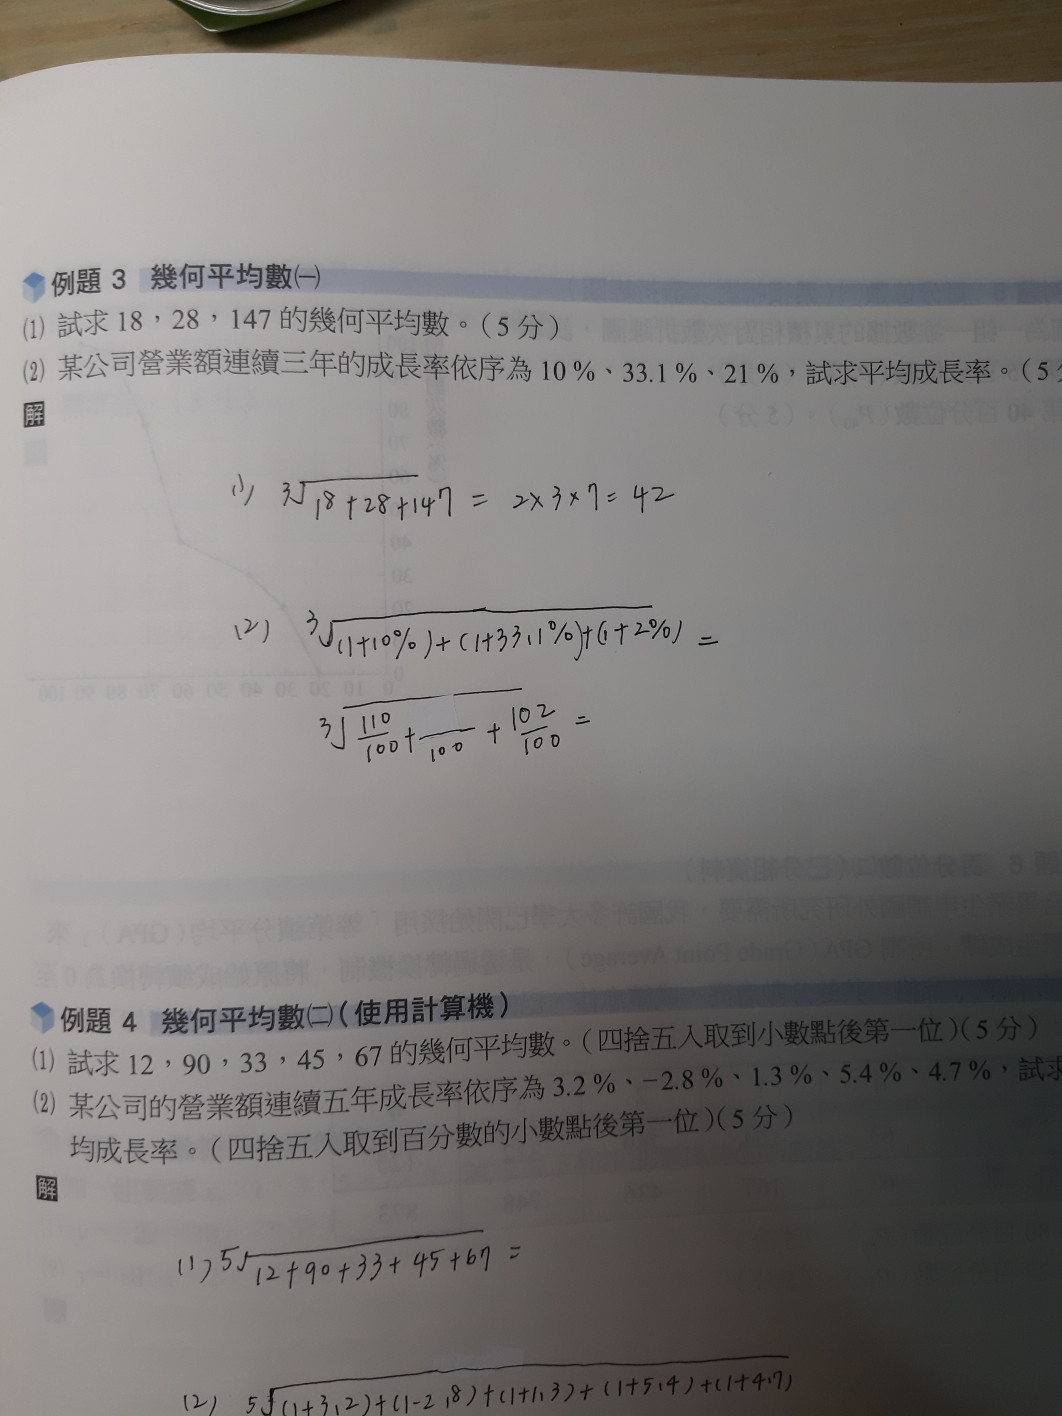 例題 3 幾何平均數㈠
⑴ 試求 18，28，147 的幾何平均數。（5 分）
⑵ 某公司營業額連續三年的成長率依序為 10 %、33.1 %、21 %，試求平均成長率。（5
解
(1) 3√18+28+147 = 2×3×7 = 42
(2) 3√(1+10%)+(1+33.1%)+(1+2%) =
3√110/100 + /100 + 102/100 =
例題 4 幾何平均數㈡（使用計算機）
⑴ 試求 12，90，33，45，67 的幾何平均數。（四捨五入取到小數點後第一位）（5 分）
⑵ 某公司的營業額連續五年成長率依序為 3.2 %、−2.8 %、1.3 %、5.4 %、4.7 %，試求
均成長率。（四捨五入取到百分數的小數點後第一位）（5 分）
解
(1) 5√12+90+33+45+67 =
(2) 5√(1+3.2)+(1-2.8)+(1+1.3)+(1+5.4)+(1+4.7)